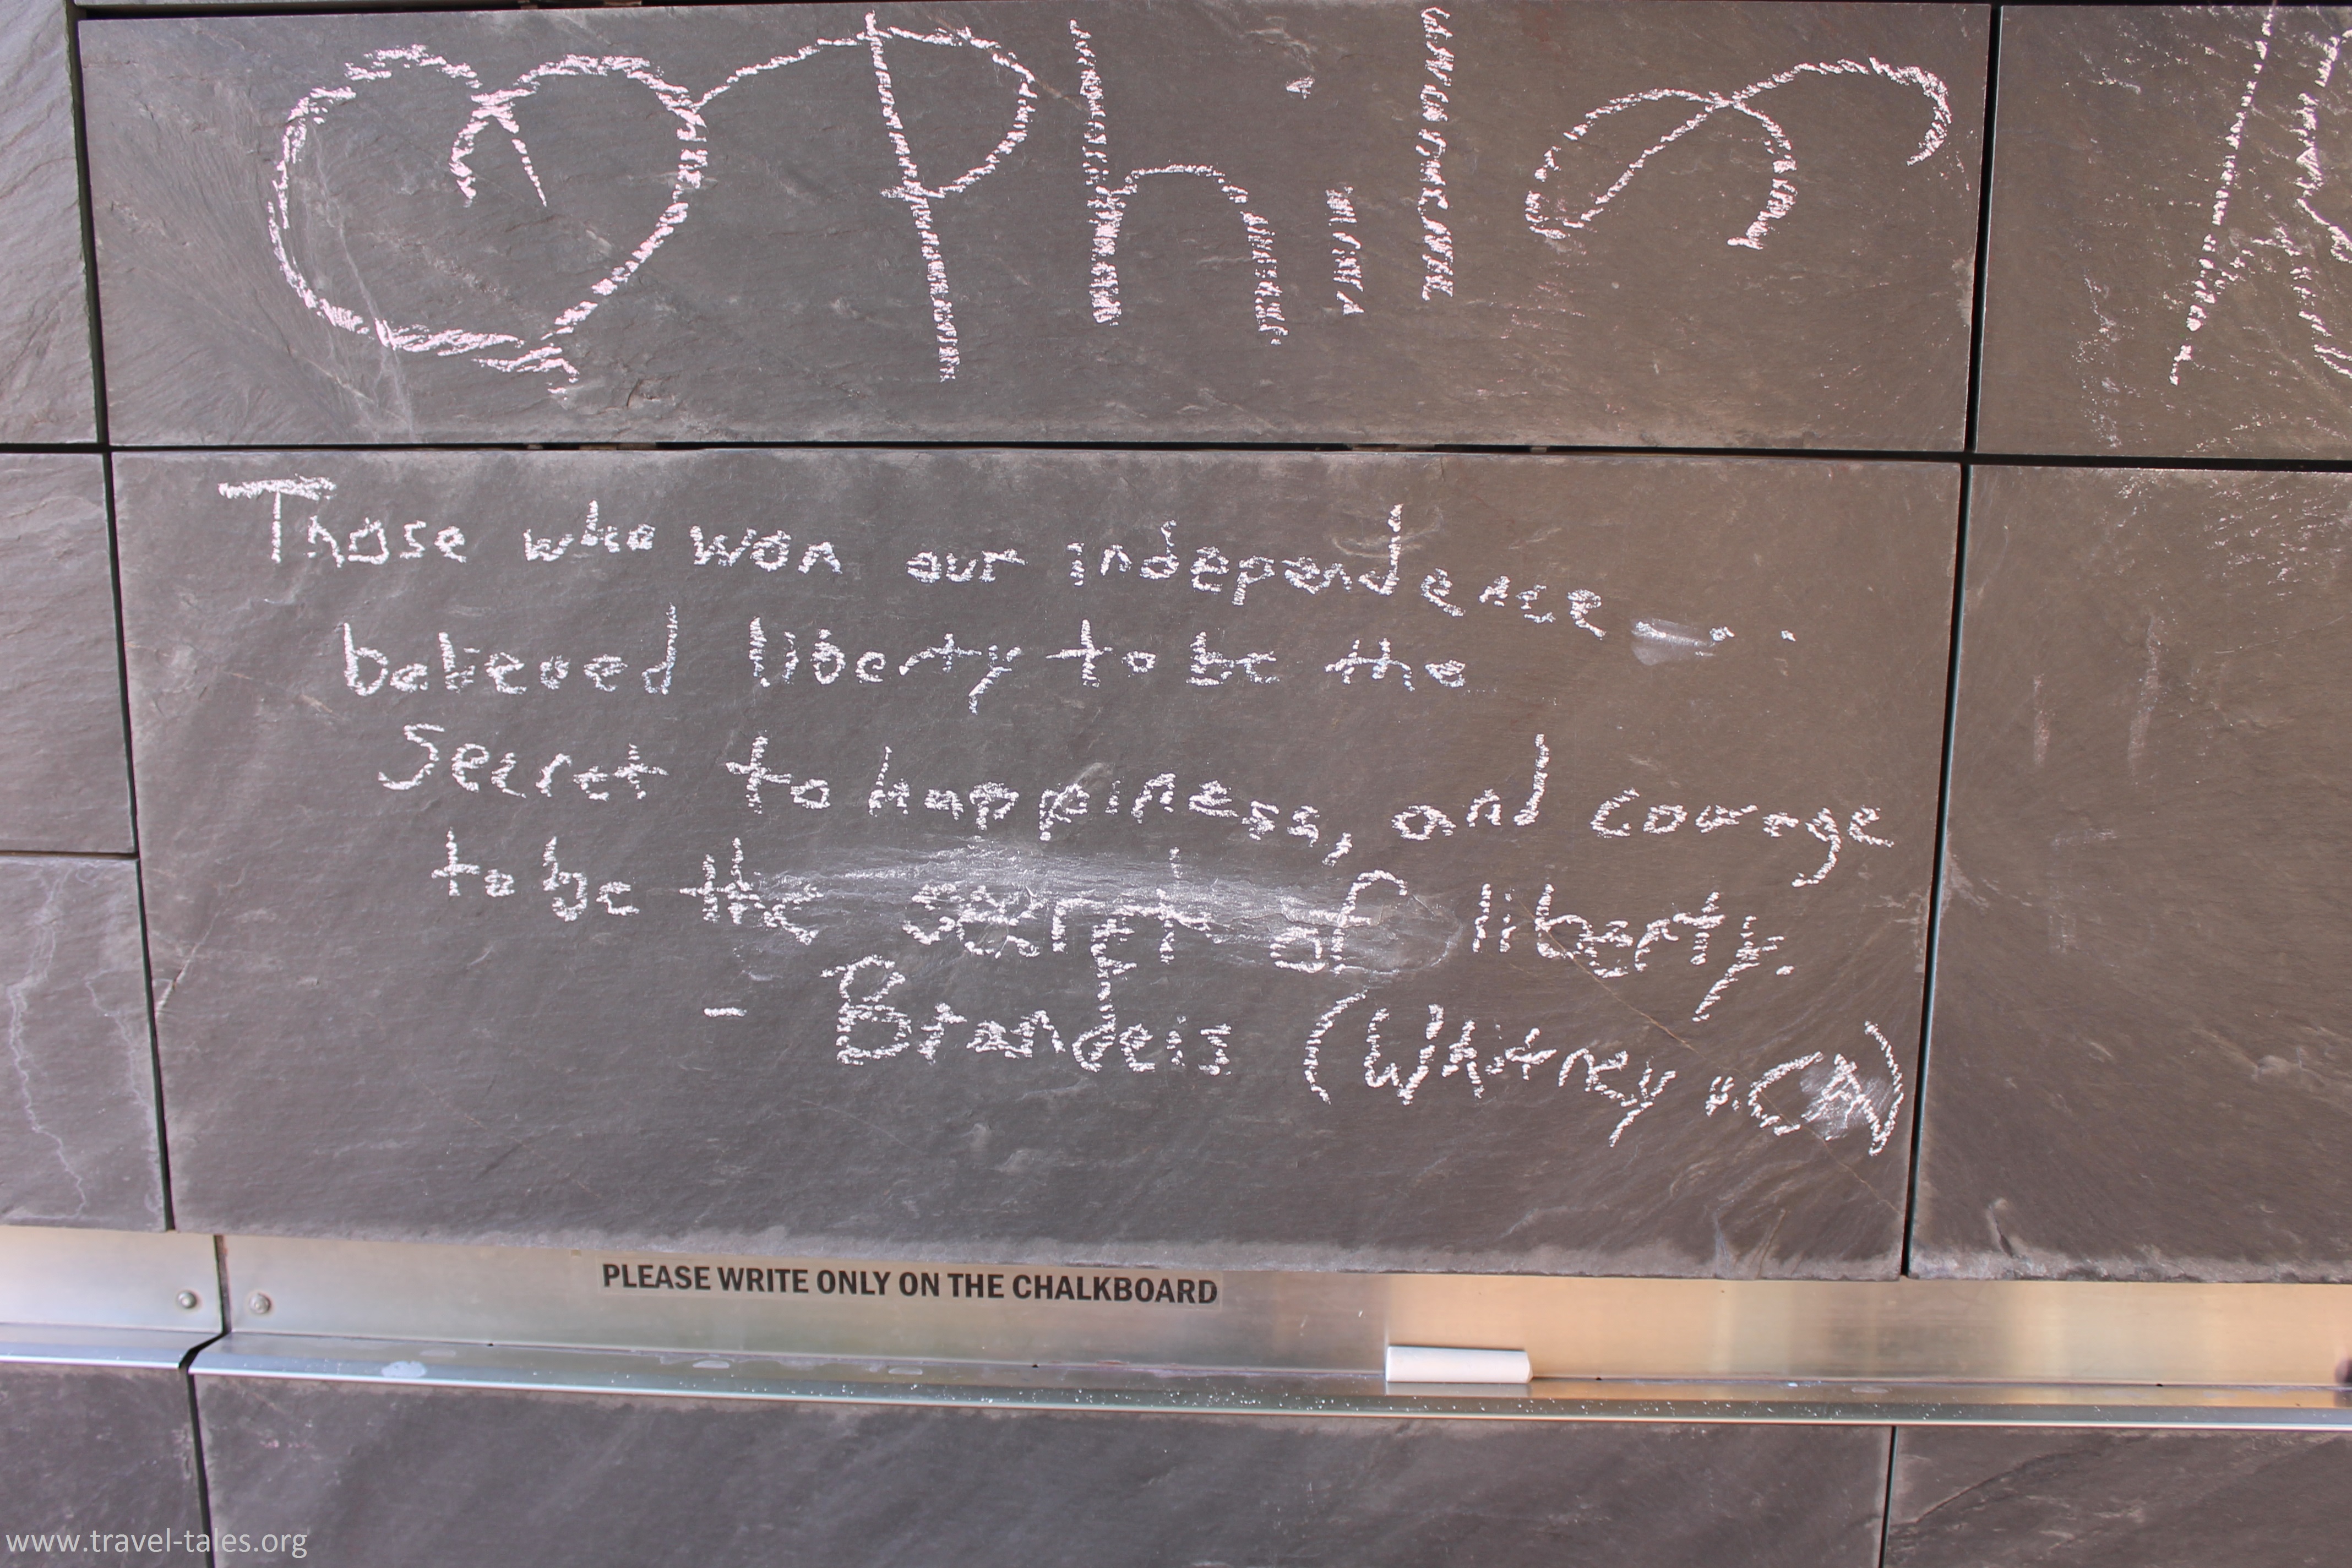 Phil
Those who won our independence . .
believed liberty to be the
secret to happiness, and courage
to be the secret of liberty.
- Brandeis (Whitney v. CA)
PLEASE WRITE ONLY ON THE CHALKBOARD
www.travel-tales.org